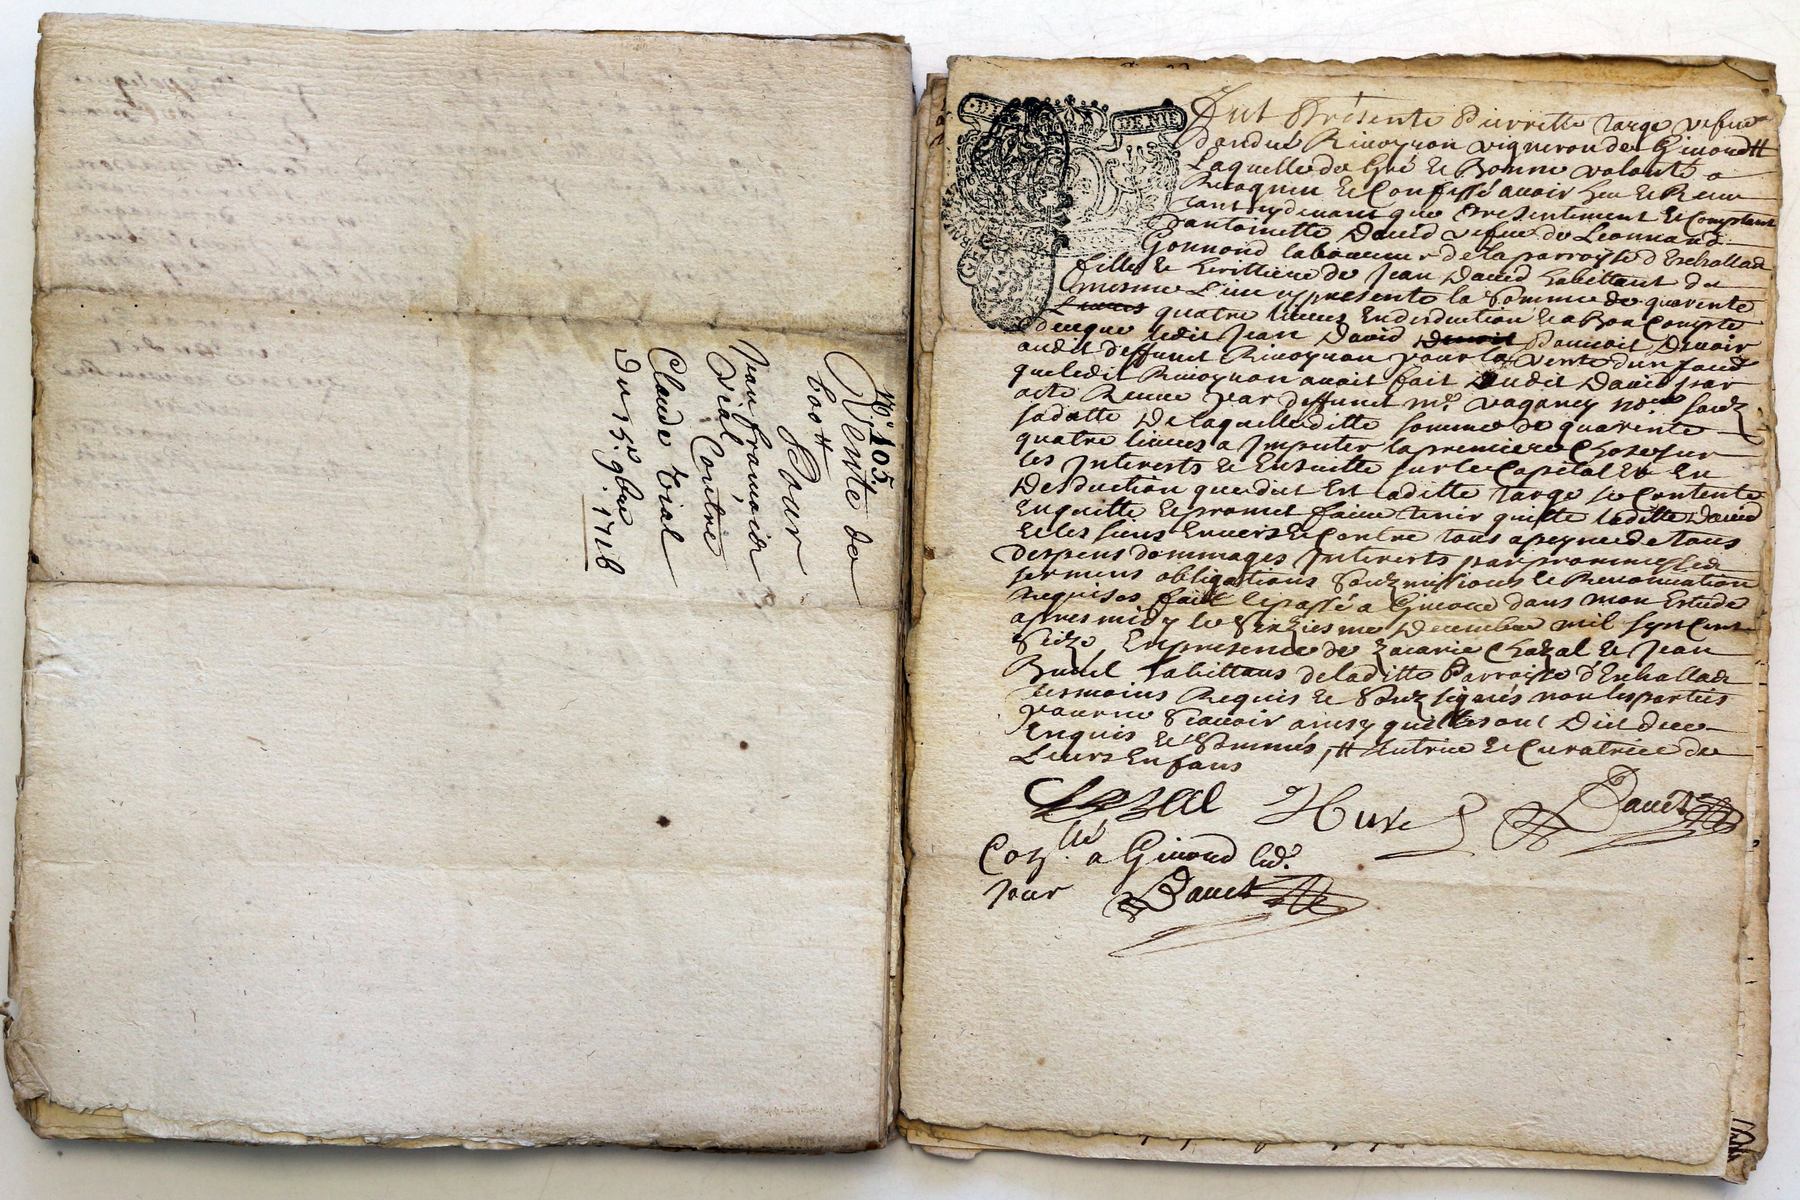 N° 105.
Vente de
600tt
Pour
Jean françois
Vial Contre
Claude Vial
Du 15e 9bre 1718
DENIE
Fut Présente Pierrette targe vefue
Dandré Rivoyron vigneron de Givord tt
Laquelle de Gré et Bonne volonté a
Recogneu et Confessé auoir heu et Receu
tant cydeuant que Presentement et Comptant
dantoinette Dauid vefue de Leonnard
Gonnond laboureur de la parroysse d'Echallad
fille et herittiere de Jean Dauid habittant du
mesme Lieu cy presente la Somme de quarente
quatre liures En desduction et a Bon Compte
de ce que ledit Jean Dauid Pouuoit Deuoir
audit deffunct Rivoyron pour la Vente d'un fond
que ledit Rivoyron auoit fait Audit Dauid par
acte Receu par deffunct me. vaganey no.re soubz
sa datte De laquelle ditte somme de quarente
quatre liures a Imputer la premiere Chose sur
les Interests et Ensuitte sur le Capital et En
Desduction que dict Est laditte targe se Contente
En quitte et promet faire tenir quitte laditte Dauid
et les siens Enuers et Contre tous a peyne de tous
despens dommages Interests par promesses
sermens obligations Soubzmissions et Renonciation
Requises fait et passé a Giuord dans mon Estude
apres midy le Sixziesme Decembre mil sept Cent
Seize En presence de Zacarie Chazal et Jean
habittans de laditte Parroisse d'Echallad
tesmoins Requis et Soubzsignés non les parties
pour ne Scauoir ainsy quelles ont Dict de ce
Enquis et Sommés tt tutrice et Curatrice de
Leurs Enfans
Chazal
Dauid
Con.llé a Giuord led.
Jour Dauid